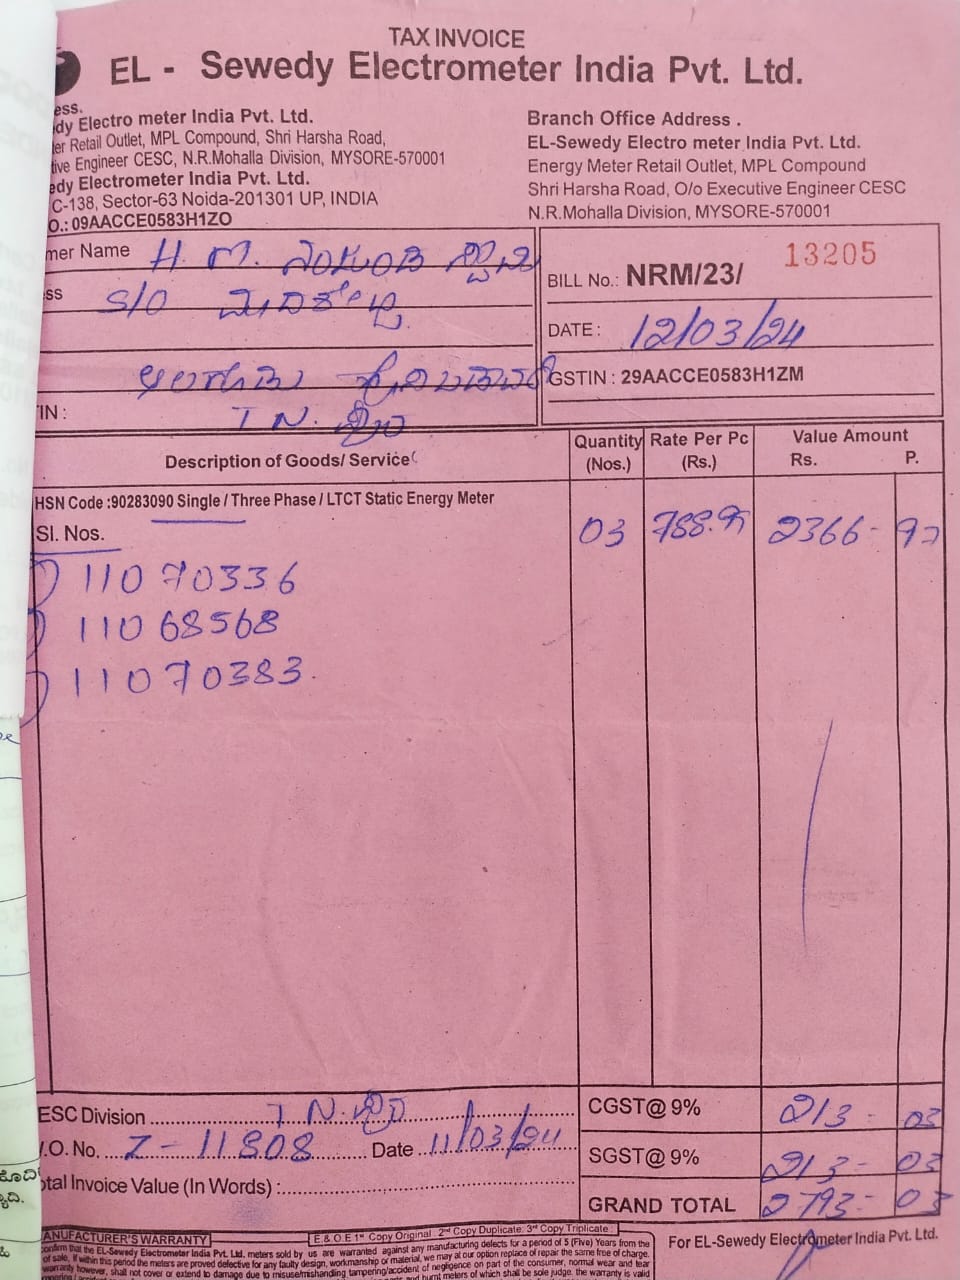 TAX INVOICE
EL - Sewedy Electrometer India Pvt. Ltd.
ess.
dy Electro meter India Pvt. Ltd.
er Retail Outlet, MPL Compound, Shri Harsha Road,
tive Engineer CESC, N.R.Mohalla Division, MYSORE-570001
edy Electrometer India Pvt. Ltd.
C-138, Sector-63 Noida-201301 UP, INDIA
O.: 09AACCE0583H1ZO
Branch Office Address .
EL-Sewedy Electro meter India Pvt. Ltd.
Energy Meter Retail Outlet, MPL Compound
Shri Harsha Road, O/o Executive Engineer CESC
N.R.Mohalla Division, MYSORE-570001
mer Name H. M.
ss S/O
IN : T N.
13205
BILL No.: NRM/23/
DATE : 12/03/24
GSTIN : 29AACCE0583H1ZM
Description of Goods/ Service Quantity (Nos.) Rate Per Pc (Rs.) Value Amount Rs. P.
HSN Code :90283090 Single / Three Phase / LTCT Static Energy Meter
Sl. Nos. 03 788. 2366-
11070336
11068568
11070383.
ESC Division T. N.
CGST@ 9% 213- 03
.O. No. Z-11808 Date 11/03/24
SGST@ 9% 213- 03
otal Invoice Value (In Words) :
GRAND TOTAL 2793- 03
ANUFACTURER'S WARRANTY E. & O.E 1st Copy Original 2nd Copy Duplicate 3rd Copy Triplicate :
For EL-Sewedy Electrometer India Pvt. Ltd.
confirm that the EL-Sewedy Electrometer India Pvt. Ltd. meters sold by us are warranted against any manufacturing defects for a period of 5 (Five) Years from the
of sale, if within this period the meters are proved defective for any faulty design, workmanship or material, we may at our option replace of repair the same free of charge.
warranty however, shall not cover or extend to damage due to misuse/mishandling tampering/accident of negligence on part of the consumer, normal wear and tear